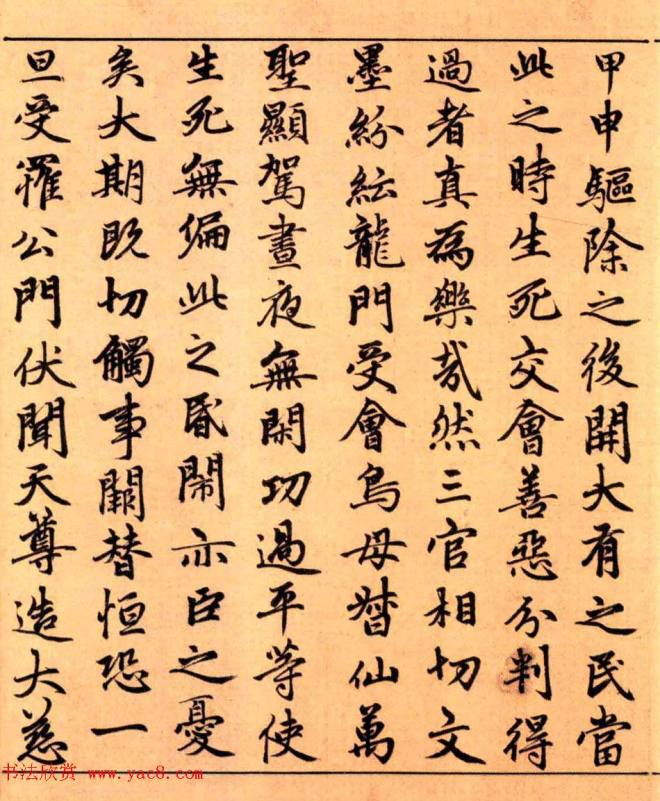 甲申驅除之後開大有之民當
此之時生死交會善惡分判得
過者真為樂哉然三官相切文
墨紛紜龍門受會鳥母督仙萬
聖顯駕晝夜無閑功過平等使
生死無偏此之昏鬧亦臣之憂
矣大期既切觸事闕替恒恐一
旦受罹公門伏聞天尊造大慈
书法欣赏 www.yac8.com